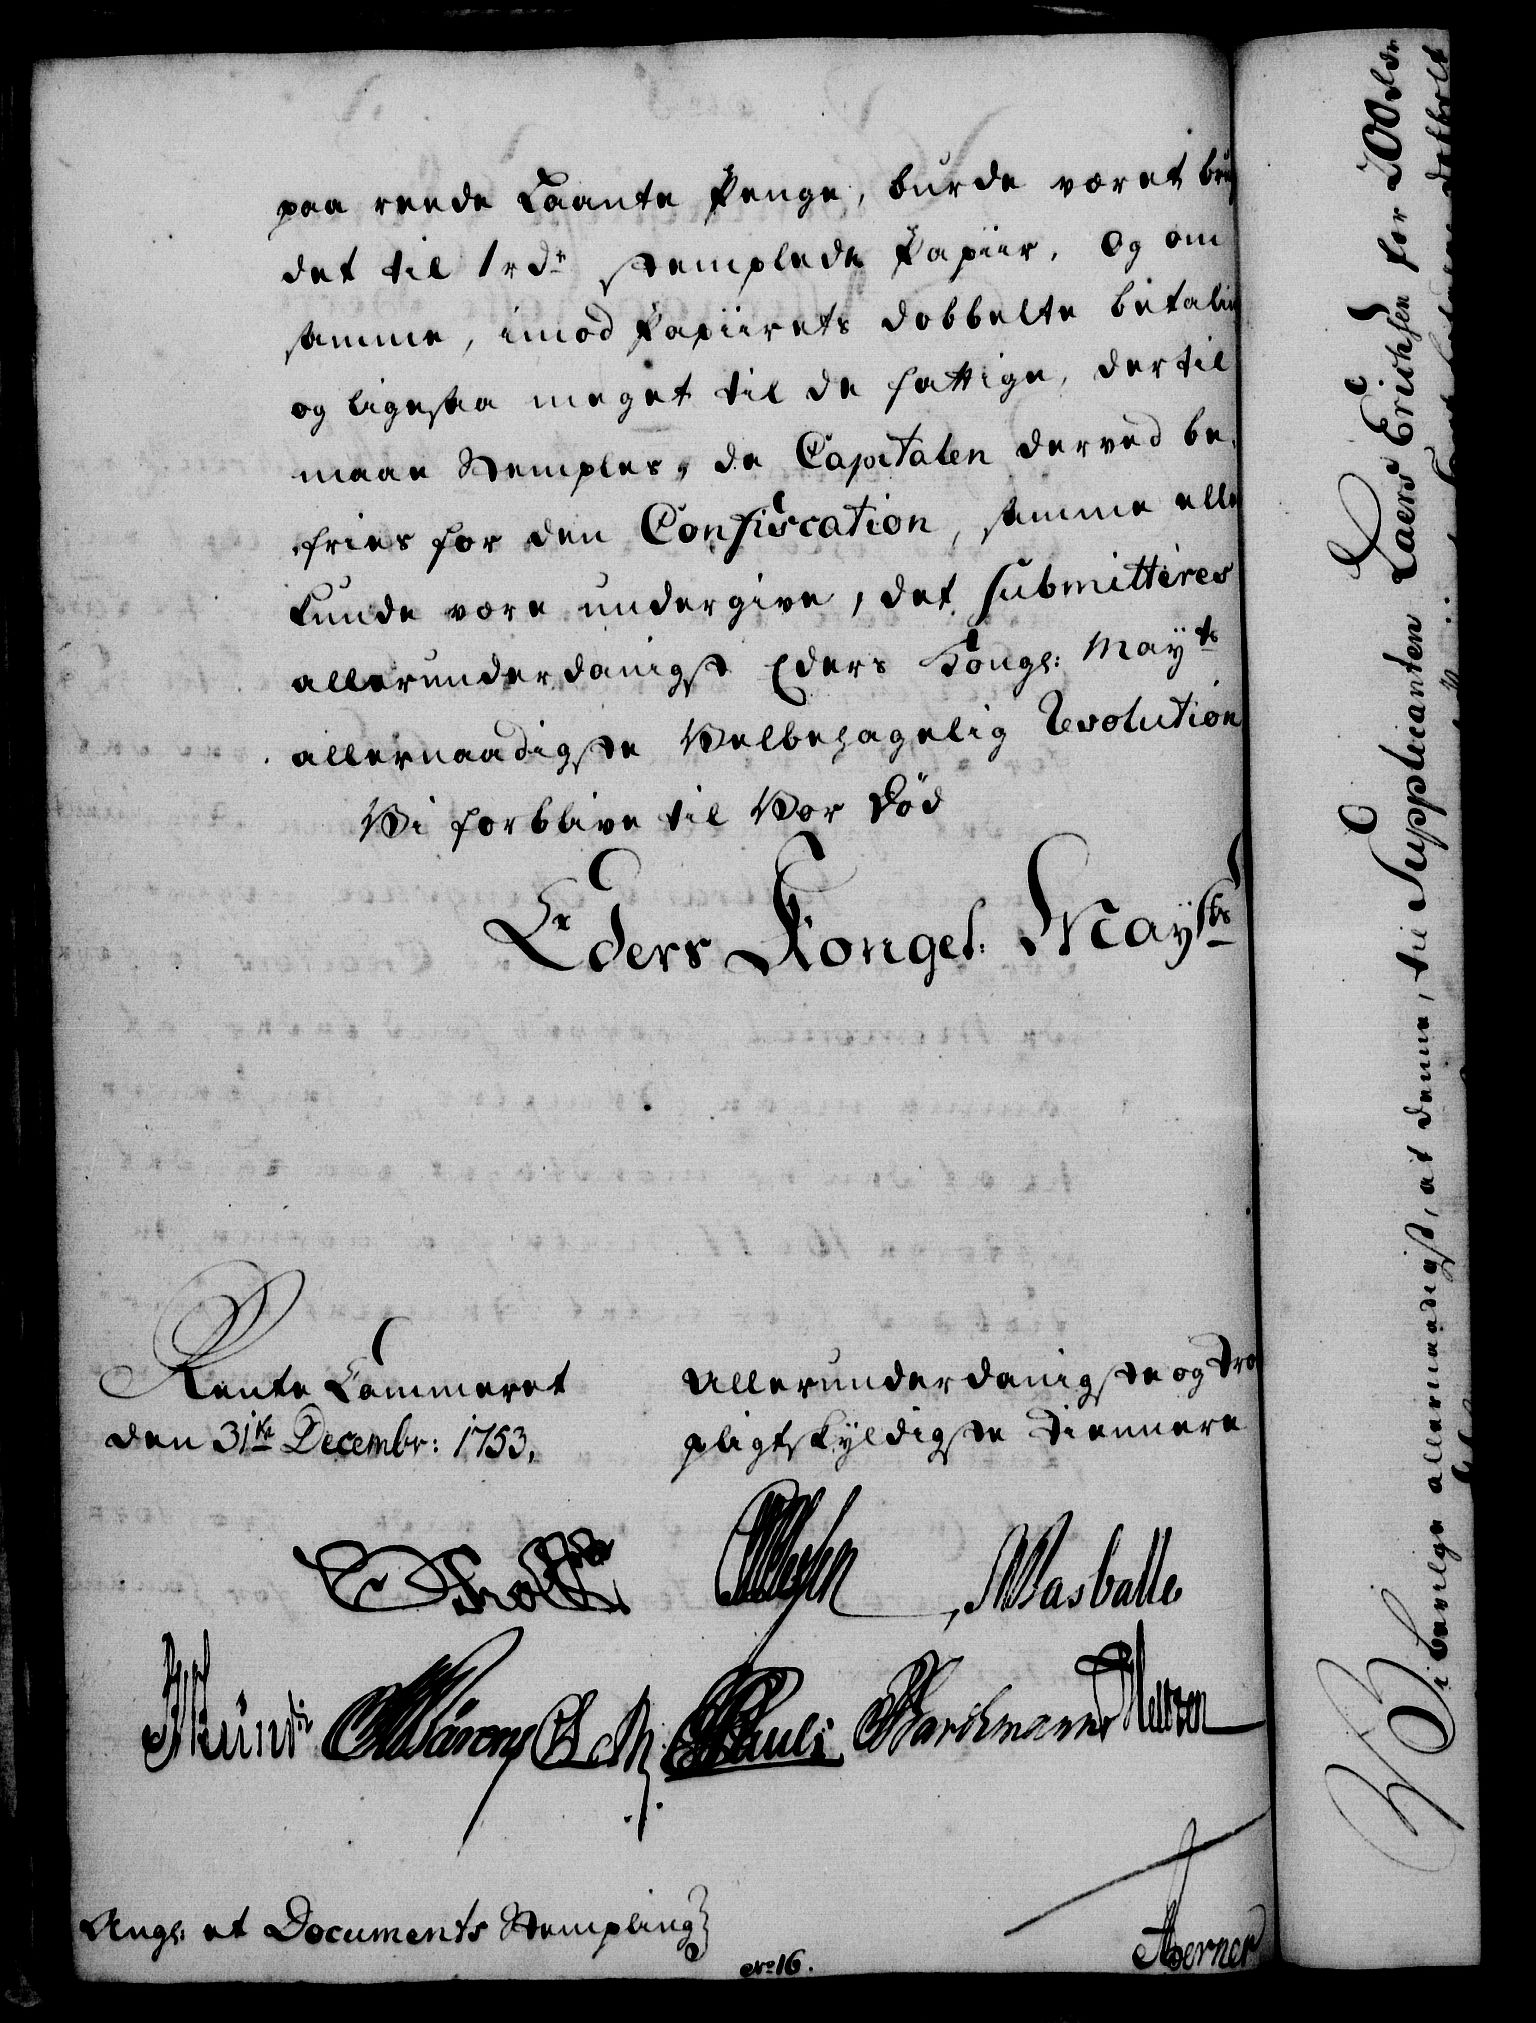 paa reede Laante Penge, burde været bru
det til 1 rdr stemplede Papiir, og om
samme, imod Papiirets dobbelte betalin
og ligesaa meget til de fattige, dertil
maae Stemples, da Capitalen derved be-
fries for den Confiscation, samme elle
kunde være undergive, det submitteres
allerunderdanigst Eders Kongl: Mayts
allernaadigste Velbehagelig Resolution
Vi forblive til Vor Død
Eders Kongel: Mayts
Rente Cammeret
den 31te Decembr: 1753.
Allerunderdanigste og Tro
pligtskyldigste Tiennere
Masballe
Pauli
Barchmann
Angl: et Documents Stempling
No 16.
Vi bevilge allernaadigst, at denne, til Supplicanten Laers Erichsen for 200 rdr